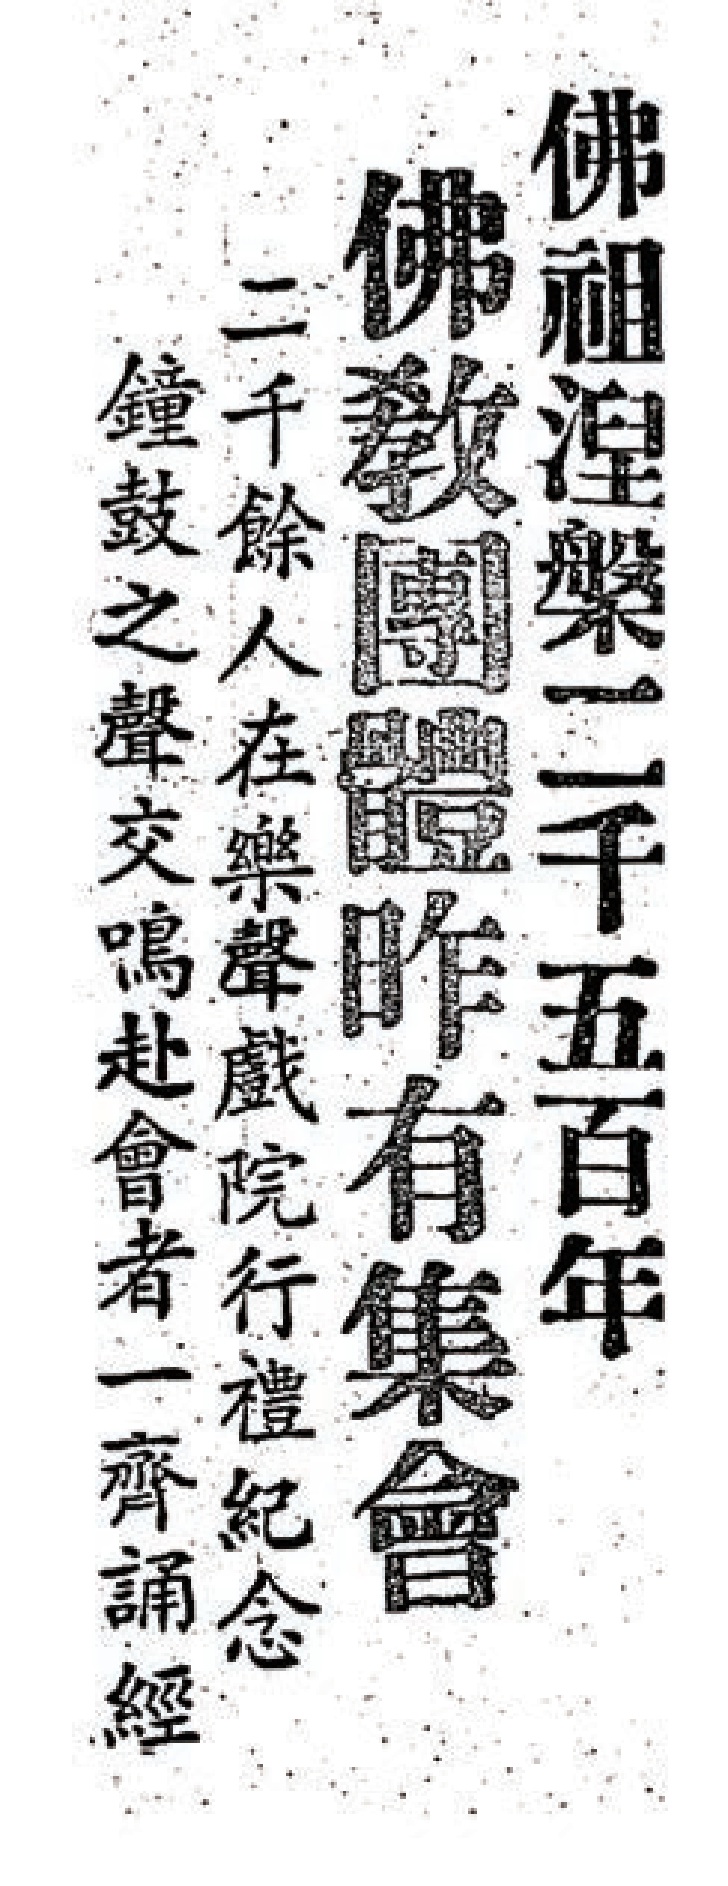 佛祖湼槃二千五百年
佛教團體昨有集會
二千餘人在樂聲戲院行禮紀念
鐘鼓之聲交鳴赴會者一齊誦經